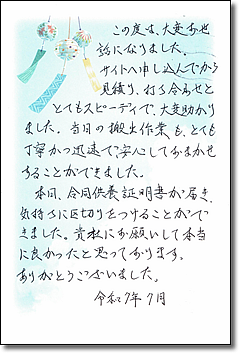 この度は、大変お世
話になりました。
サイトへ申し込んでから
見積り、打ち合わせと
とてもスピーディで、大変助かり
ました。当日の搬出作業も、とても
丁寧かつ迅速で、安心しておまかせ
することができました。
本日、合同供養証明書が届き、
気持ちに区切りをつけることがで
きました。貴社にお願いして本当
に良かったと思っております。
ありがとうございました。
令和7年7月